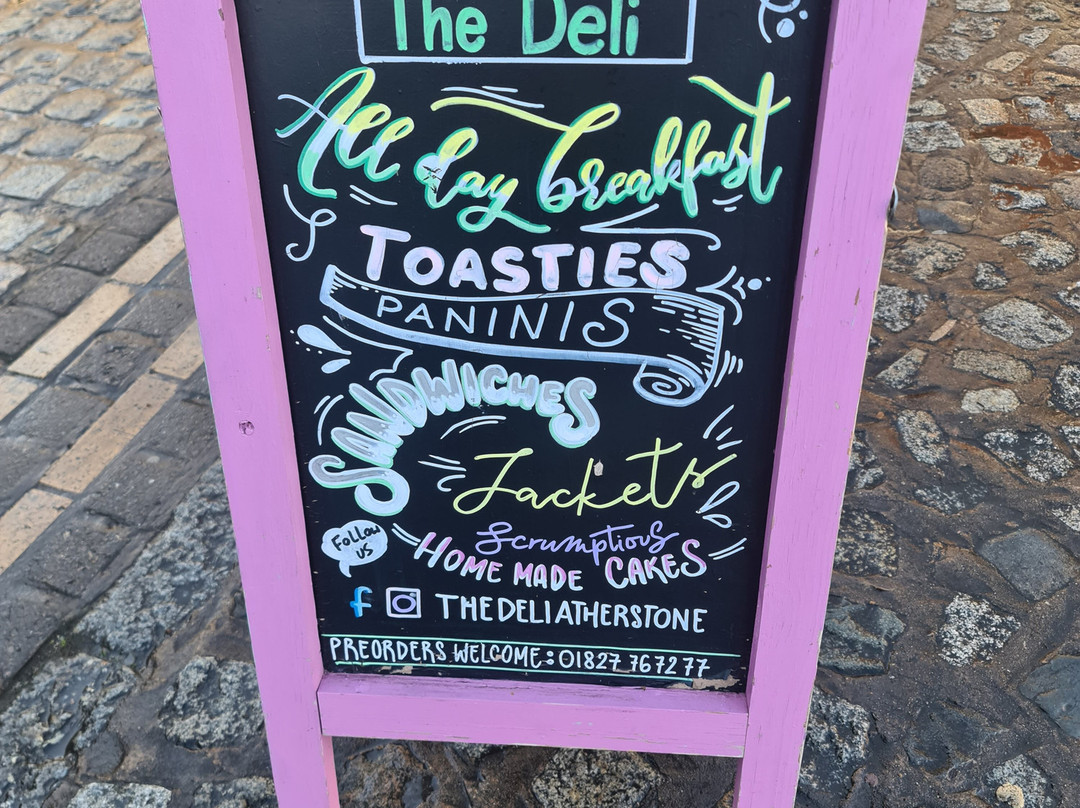 The Deli
All day breakfast
TOASTIES
PANINIS
SANDWICHES
Jackets
Follow
us
Scrumptious
HOME MADE CAKES
f THEDELIATHERSTONE
PREORDERS WELCOME: 01827 767277